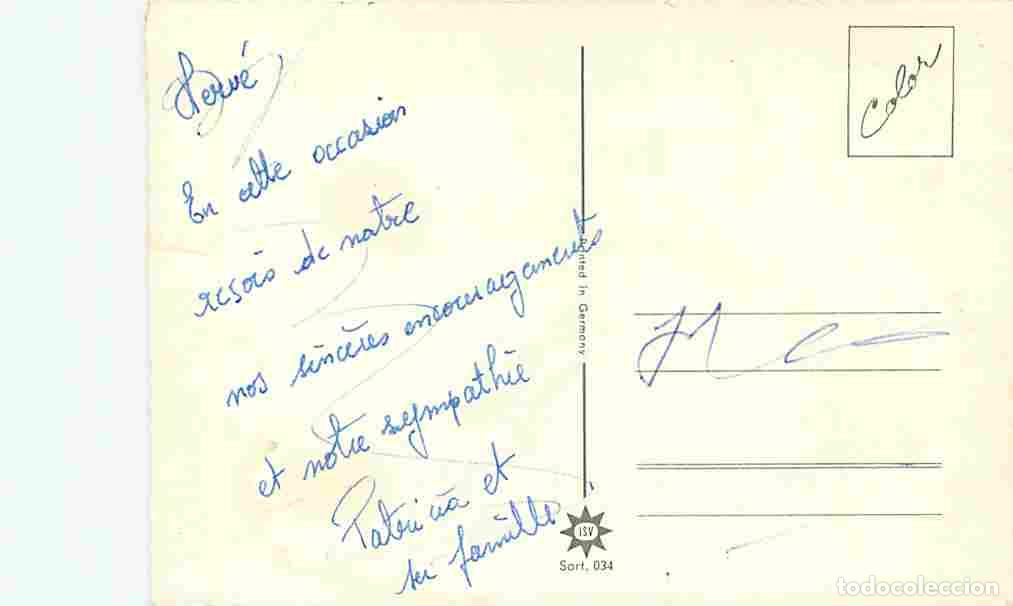 Hervé
En cette occasion
reçois de notre
nos sincères encouragements
et notre sympathie
Patricia et
sa famille
Color
Printed in Germany
ISV
Sort. 034
todocoleccion